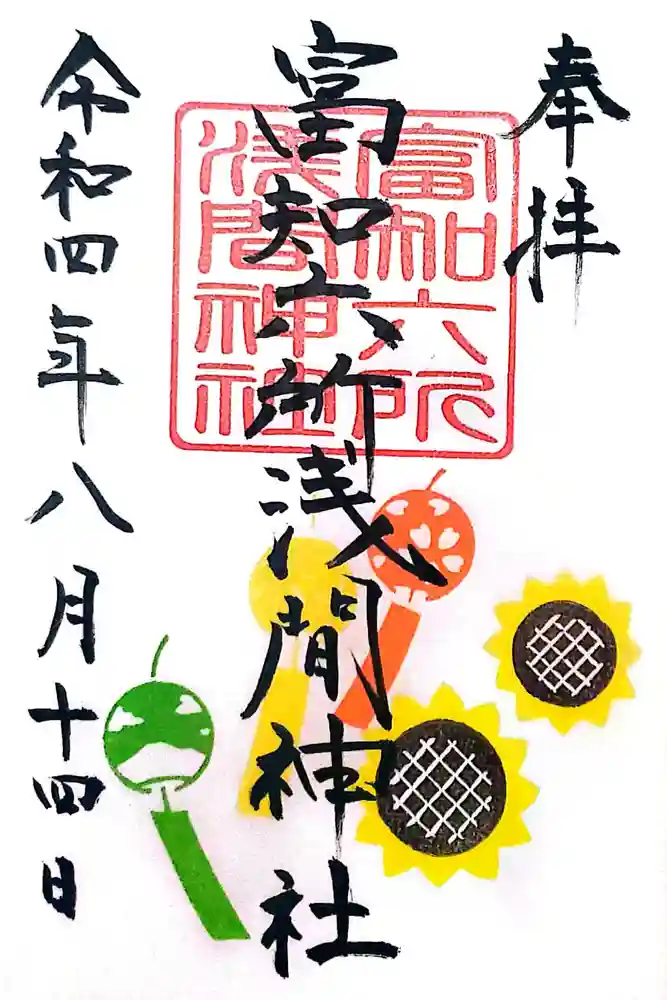 奉拝
富知六所浅間神社
富知六所
浅間神社
令和四年八月十四日